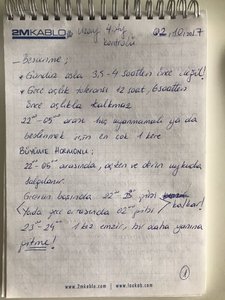 2M KABLO
Uzay 4. Ay
kontrolü
02.10.2017
— Beslenme;
* Gündüz asla 3,5-4 saatten önce değil!
* Gece açlık toleransı 12 saat, 6 saatten
önce açlıkla kalkmaz
22⁰⁰-05⁰⁰ arası hiç uyanmamalı ya da
beslenmek için en çok 1 kere
BÜYÜME HORMONU;
22⁰⁰-05⁰⁰ arasında, açken ve derin uykuda
salgılanır.
Gecenin başında 22⁰⁰ gibi
Yada gece ortasında 02⁰⁰ gibi
kalkar!
23⁰⁰-24⁰⁰ 1 kez emzir, bir daha yanına
gitme!!
1
www.2mkablo.com | www.laokab.com